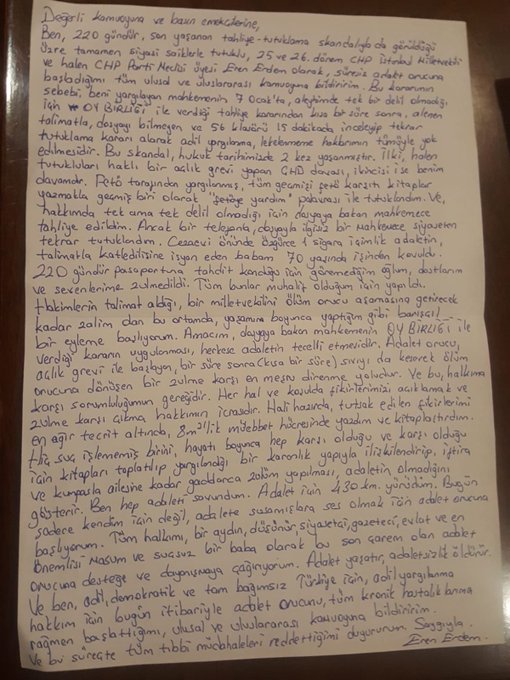 Değerli kamuoyuna ve basın emekçilerine,
Ben, 220 gündür, son yaşanan tahliye-tutuklama skandalıyla da görüldüğü
üzre tamamen siyasi saiklerle tutuklu, 25 ve 26. dönem CHP İstanbul Milletvekili
ve halen CHP Parti Meclisi üyesi Eren Erdem olarak, süresiz adalet orucuna
başladığımı tüm ulusal ve uluslararası kamuoyuna bildiririm. Bu kararımın
sebebi, beni yargılayan mahkemenin 7 Ocak'ta, aleyhimde tek bir delil olmadığı
için OY BİRLİĞİ ile verdiği tahliye kararından kısa bir süre sonra, alenen
talimatla, dosyayı bilmeyen ve 56 klasörü 15 dakikada inceleyip tekrar
tutuklama kararı alarak adil yargılanma, lekelenmeme haklarımın tümüyle yok
edilmesidir. Bu skandal, hukuk tarihimizde 2 kez yaşanmıştır. İlki, halen
tutukluları haklı bir açlık grevi yapan ÇHD davası, ikincisi ise benim
davamdır. Fetö tarafından yargılanmış, tüm geçmişi fetö karşıtı kitaplar
yazmakla geçmiş biri olarak "fetöye yardım" palavrası ile tutuklandım. Ve,
hakkımda tek ama tek delil olmadığı için dosyaya bakan mahkemece
tahliye edildim. Ancak bir telefonla, dosyayla ilgisiz bir mahkemece siyaseten
tekrar tutuklandım. Cezaevi önünde özgürce 1 sigara içimlik adaletin,
talimatla katledilişine isyan eden babam 70 yaşında işinden kovuldu.
220 gündür pasaportuna tahdit konduğu için göremediğim oğlum, dostlarım
ve sevenlerime zulmedildi. Tüm bunlar muhalif olduğum için yapıldı.
Hakimlerin talimat aldığı, bir milletvekilini ölüm orucu aşamasına getirecek
kadar zalim olan bu ortamda, yaşamım boyunca yaptığım gibi barışçıl
bir eyleme başlıyorum. Amacım, dosyaya bakan mahkemenin OY BİRLİĞİ ile
verdiği kararın uygulanması, herkese adaletin tecelli etmesidir. Adalet orucu,
açlık grevi ile başlayan, bir süre sonra (kısa bir süre) sıvıyı da keserek ölüm
orucuna dönüşen bir zulme karşı en meşru direnme yoludur. Ve bu, halkıma
karşı sorumluluğumun gereğidir. Her hal ve koşulda fikirlerimizi açıklamak ve
zulme karşı çıkma hakkımın icrasıdır. Hali hazırda, tutsak edilen fikirlerimi
en ağır tecrit altında, 8 m²'lik müebbet hücresinde yazdım ve kitaplaştırdım.
Hiç suç işlememiş birini, hayatı boyunca hep karşı olduğu ve karşı olduğu
için kitapları toplatılıp yargılandığı bir karanlık yapıyla ilişkilendirip, iftira
ve kumpasla ailesine kadar gaddarca zulüm yapılması, adaletin olmadığını
gösterir. Ben hep adaleti savundum. Adalet için 430 km. yürüdüm. Bugün
sadece kendim için değil, adalete susamışlara ses olmak için adalet orucuna
başlıyorum. Tüm halkımı, bir aydın, düşünür, siyasetçi, gazeteci, evlat ve en
önemlisi masum ve suçsuz bir baba olarak bu son çarem olan adalet
orucuna desteğe ve dayanışmaya çağırıyorum. Adalet yaşatır, adaletsizlik öldürür.
Ve ben, adil, demokratik ve tam bağımsız Türkiye için, adil yargılanma
hakkım için bugün itibariyle adalet orucunu, tüm kronik hastalıklarıma
rağmen başlattığımı, ulusal ve uluslararası kamuoyuna bildiririm.
Ve bu süreçte tüm tıbbi müdahaleleri reddettiğimi duyururum. Saygıyla.
Eren Erdem.